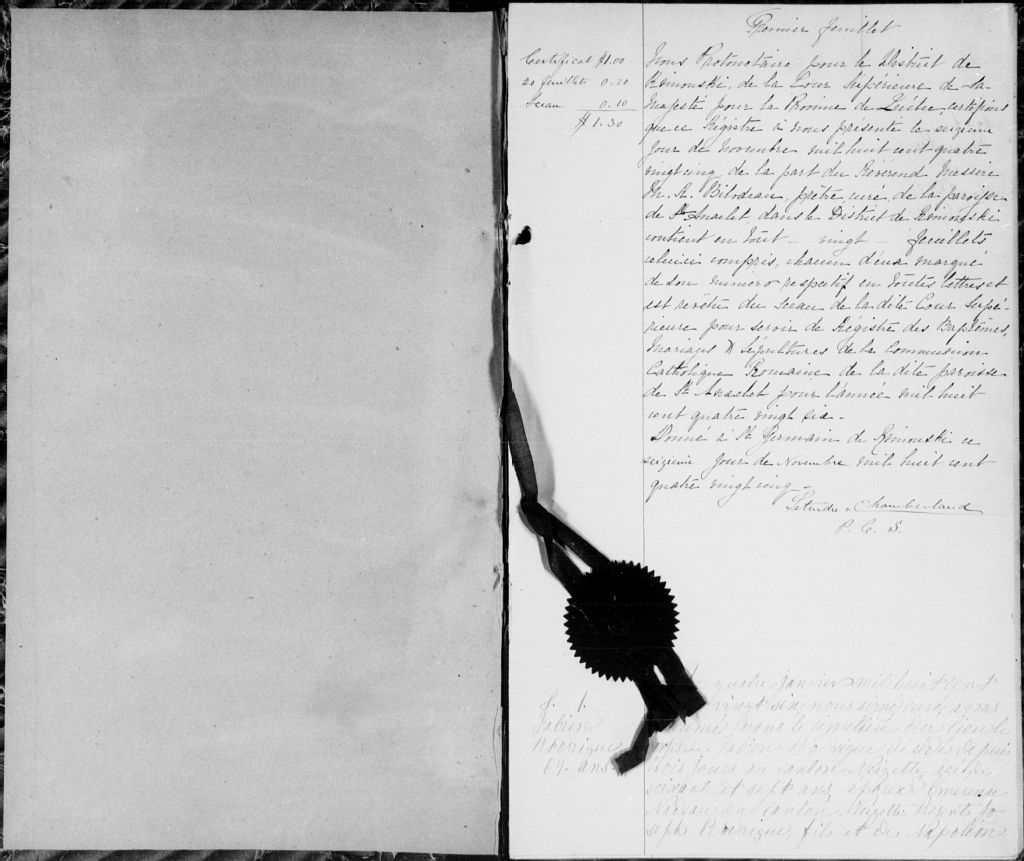 Premier feuillet
Certificat $1.00
20 feuillets 0.20
Sceau 0.10
$1.30
Nous Protonotaire pour le District de
Rimouski, de la Cour Supérieure de Sa
Majesté pour la Province de Québec, certifions
que ce Régistre à nous présenté le seizième
jour de Novembre mil huit cent quatre
vingt cinq de la part du Révérend Messire
A. Bilodeau, prêtre, curé, de la paroisse
de St Anaclet, dans le District de Rimouski
contient en tout - vingt - feuillets
celui ci compris, chacun d'eux marqué
de son numéro respectif en toutes lettres et
est revêtu du sceau de la dite Cour Supé-
rieure pour servir de Régistre des Baptêmes,
Mariages & Sépultures de la Communion
Catholique Romaine de la dite paroisse
de St Anaclet pour l'année mil huit
cent quatre vingt six -
Donné à St Germain de Rimouski ce
seizième jour de Novembre mil huit cent
quatre vingt cinq -
Letendre & Chamberland
P. C. S.
S. 1.
Fabien
Rodrigue
67 ans
quatre janvier mil huit cent
vingt six, nous signé, curé, avons
inhumé dans le cimetière du lieu le
corps de Fabien Rodrigue décédé depuis
trois jours au canton Neigette, âgé de
soixante et sept ans, époux Emérence
Nadeau du canton Neigette. Présents Jo
seph Rodrigue, fils et de Napoléon